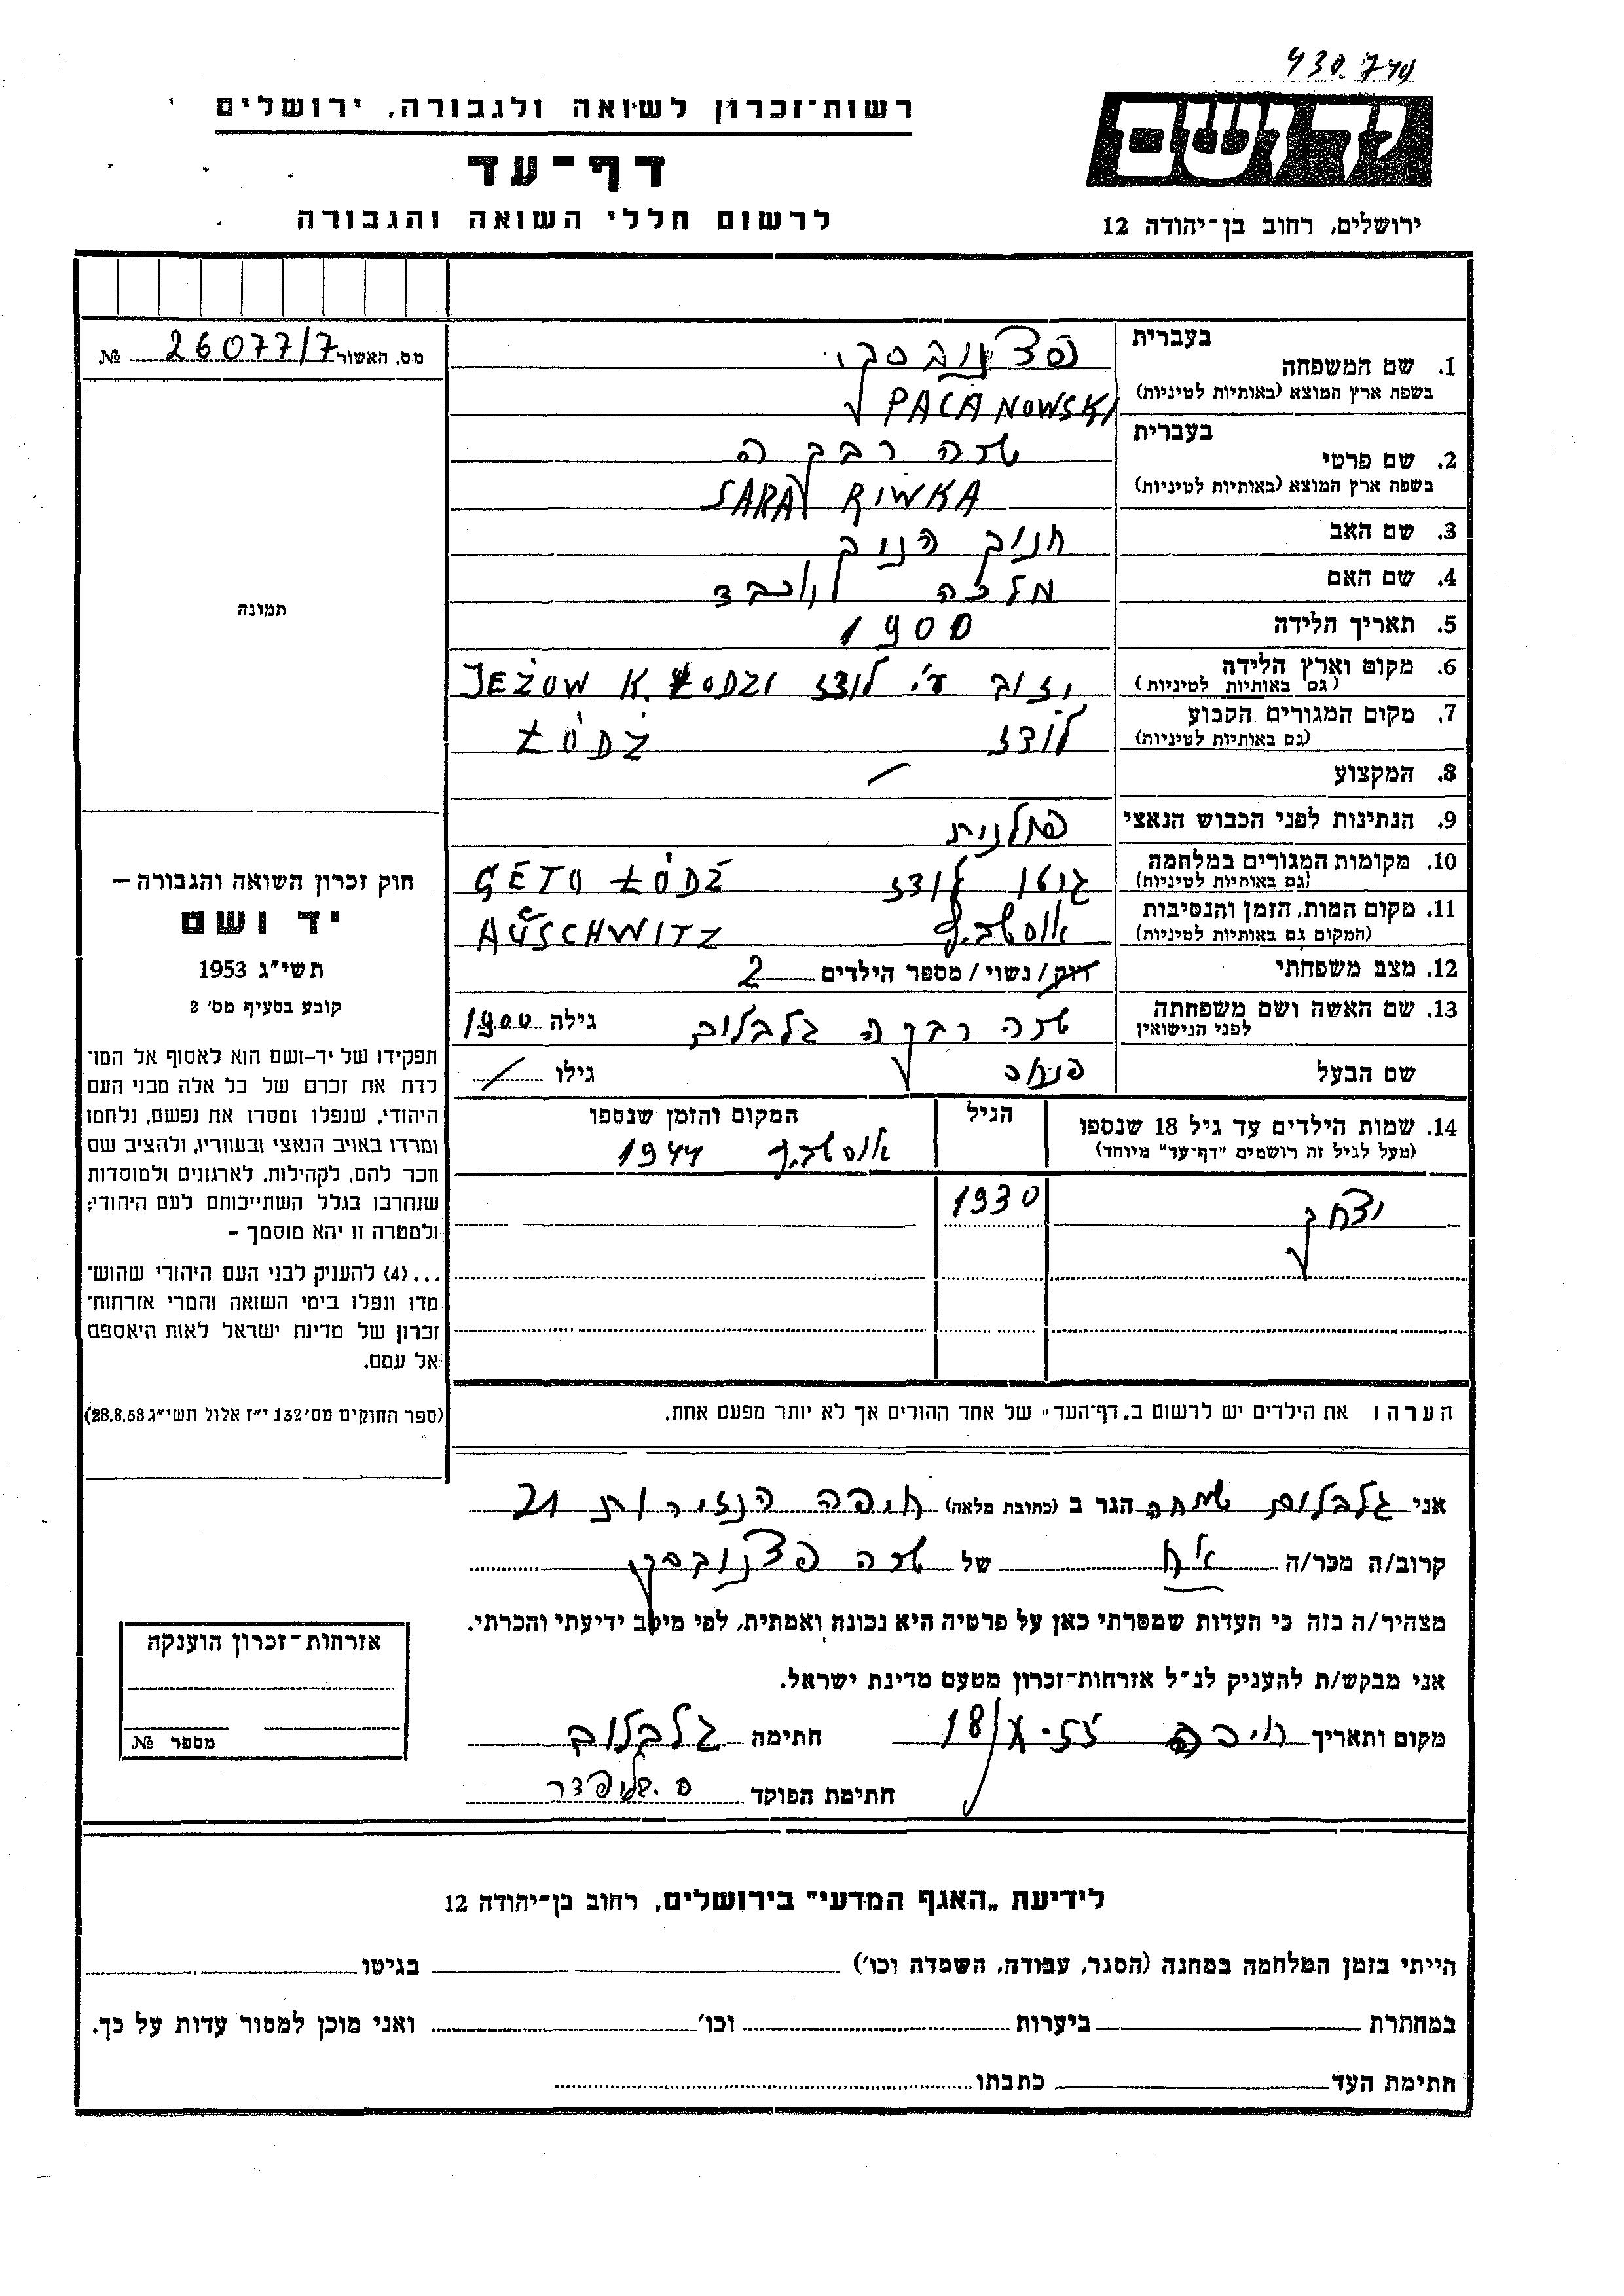 430.740
רשות־זכרון לשואה ולגבורה, ירושלים
דף־עד
לרשום חללי השואה והגבורה
יד ושם
ירושלים, רחוב בן־יהודה 12
מס. האשור 26077/7 №
תמונה
חוק זכרון השואה והגבורה –
יד ושם
תשי״ג 1953
קובע בסעיף מס׳ 2
תפקידו של יד–ושם הוא לאסוף אל המו־
לדת את זכרם של כל אלה מבני העם
היהודי, שנפלו ומסרו את נפשם, נלחמו
ומרדו באויב הנאצי ובעוזריו, ולהציב שם
וזכר להם, לקהילות, לארגונים ולמוסדות
שנחרבו בגלל השתייכותם לעם היהודי;
ולמטרה זו יהא מוסמך –
...(4) להעניק לבני העם היהודי שהוש־
מדו ונפלו בימי השואה והמרי אזרחות־
זכרון של מדינת ישראל לאות היאספם
אל עמם.
(ספר החוקים מס׳ 132 י״ז אלול תשי״ג 28.8.53)
בעברית
1. שם המשפחה פצנובסקי
בשפת ארץ המוצא (באותיות לטיניות) PACANOWSKI
בעברית
2. שם פרטי שרה רבקה
בשפת ארץ המוצא (באותיות לטיניות) SARA RIWKA
3. שם האב חנוך הנוך
4. שם האם מלכה יוכבד
5. תאריך הלידה 1900
6. מקום וארץ הלידה יזוב ע״י לודז JEŻOW K. ŁODZI
(גם באותיות לטיניות)
7. מקום המגורים הקבוע לודז ŁÓDŻ
(גם באותיות לטיניות)
8. המקצוע /
9. הנתינות לפני הכבוש הנאצי פולנית
10. מקומות המגורים במלחמה גיטו לודז GETO ŁÓDŻ
(גם באותיות לטיניות)
11. מקום המות, הזמן והנסיבות אושויץ AUSCHWITZ
(המקום גם באותיות לטיניות)
12. מצב משפחתי רוק/נשוי/מספר הילדים 2
13. שם האשה ושם משפחתה שרה רבקה גלבלום גילה 1900
לפני הנישואין
שם הבעל פנחס גילו /
14. שמות הילדים עד גיל 18 שנספו הגיל המקום והזמן שנספו
(מעל לגיל זה רושמים ״דף־עד״ מיוחד) 1944
יצחק 1930
הערה: את הילדים יש לרשום ב„דף־העד״ של אחד ההורים אך לא יותר מפעם אחת.
אני גלבלום שמחה הגר ב (כתובת מלאה) חיפה הנזירות 21
קרוב/ה מכר/ה אח של שרה פצנובסקי
מצהיר/ה בזה כי העדות שמסרתי כאן על פרטיה היא נכונה ואמתית, לפי מיטב ידיעתי והכרתי.
אני מבקש/ת להעניק לנ״ל אזרחות־זכרון מטעם מדינת ישראל.
מקום ותאריך חיפה 18/X-55 חתימה גלבלום
חתימת הפוקד
אזרחות־זכרון הוענקה
מספר №
לידיעת „האגף המדעי״ בירושלים, רחוב בן־יהודה 12
הייתי בזמן המלחמה במחנה (הסגר, עבודה, השמדה וכו׳) בגיטו
במחתרת ביערות וכו׳ ואני מוכן למסור עדות על כך.
חתימת העד כתבתו